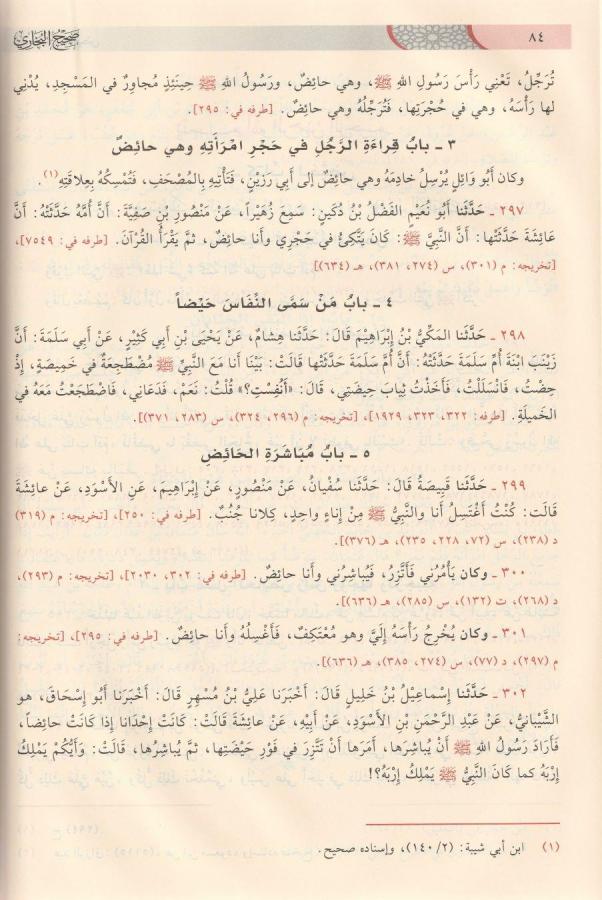 ٨٤
صحيح البخاري
تُرَجِّلُ، تَعْنِي رَأْسَ رَسُولِ اللهِ ﷺ، وهي حائِضٌ، ورَسُولُ اللهِ ﷺ حِينَئِذٍ مُجاوِرٌ في المَسْجِدِ، يُدْنِي
لها رَأْسَهُ، وهي في حُجْرَتِها، فَتُرَجِّلُهُ وهي حائِضٌ. [طرفه في: ٢٩٥].
٣ ـ بابُ قِراءَةِ الرَّجُلِ في حَجْرِ امْرَأَتِهِ وهي حائِضٌ
وكان أَبُو وَائِلٍ يُرْسِلُ خادِمَهُ وهي حائِضٌ إلى أَبي رَزِينٍ، فَتَأْتِيهِ بِالمُصْحَفِ، فَتُمْسِكُهُ بِعِلاقَتِهِ(١).
٢٩٧ ـ حَدَّثَنا أَبُو نُعَيْمٍ الفَضْلُ بْنُ دُكَينٍ: سَمِعَ زُهَيراً، عَنْ مَنْصُورِ بْنِ صَفِيَّةَ: أَنَّ أُمَّهُ حَدَّثَتْهُ: أَنَّ
عَائِشَةَ حَدَّثَتْها: أَنَّ النَّبِيَّ ﷺ: كَانَ يَتَّكِئُ في حَجْرِي وأَنا حائِضٌ، ثمَّ يَقْرَأُ القُرْآنَ. [طرفه في: ٧٥٤٩]،
[تخريجه: م (٣٠١)، س (٢٧٤، ٣٨١)، هـ (٦٣٤)]
٤ ـ بابُ مَنْ سَمَّى النِّفَاسَ حَيْضاً
٢٩٨ ـ حَدَّثَنا المَكِّيُّ بْنُ إِبْرَاهِيمَ قَالَ: حَدَّثَنا هِشامٌ، عَنْ يَحْيَى بْنِ أَبي كَثِيرٍ، عَنْ أَبي سَلَمَةَ: أَنَّ
زَيْنَبَ ابْنَةَ أُمِّ سَلَمَةَ حَدَّثَتْهُ: أَنَّ أُمَّ سَلَمَةَ حَدَّثَتْها قالَتْ: بَيْنَا أَنا مَعَ النَّبِيِّ ﷺ مُضْطَجِعَةٌ في خَمِيصَةٍ، إِذْ
حِضْتُ، فَانْسَلَلْتُ، فَأَخَذْتُ ثِيابَ حِيضَتِي، قَالَ: «أَنُفِسْتِ؟» قُلْتُ: نَعَمْ، فَدَعَانِي، فَاضْطَجَعْتُ مَعَهُ في
الخَمِيلَةِ. [طرفه: ٣٢٢، ٣٢٣، ١٩٢٩]، [تخريجه: م (٢٩٦، ٣٢٤)، س (٢٨٣، ٣٧١)].
٥ ـ بابُ مُبَاشَرَةِ الحَائِضِ
٢٩٩ ـ حَدَّثَنا قَبِيصَةُ قَالَ: حَدَّثَنا سُفْيانُ، عَنْ مَنْصُورٍ، عَنْ إِبْرَاهِيمَ، عَنِ الأَسْوَدِ، عَنْ عائِشَةَ
قَالَت: كُنْتُ أَغْتَسِلُ أَنا والنَّبِيُّ ﷺ مِنْ إِناءٍ واحِدٍ، كِلانا جُنُبٌ. [طرفه في: ٢٥٠]، [تخريجه: م (٣١٩)
د (٢٣٨)، س (٧٢، ٢٢٨، ٢٣٥)، هـ (٣٧٦)].
٣٠٠ ـ وكان يَأْمُرُني فَأَتَّزِرُ، فَيُباشِرُني وأَنا حائِضٌ. [طرفه في: ٣٠٢، ٢٠٣٠]، [تخريجه: م (٢٩٣)،
د (٢٦٨)، ت (١٣٢)، س (٢٨٥)، هـ (٦٣٦)].
٣٠١ ـ وكان يُخْرِجُ رَأْسَهُ إِلَيَّ وهو مُعْتَكِفٌ، فَأَغْسِلُهُ وأَنا حائِضٌ. [طرفه في: ٢٩٥]، [تخريجه:
م (٢٩٧)، د (٧٧)، س (٢٧٤، ٣٨٥)، هـ (٦٣٦)].
٣٠٢ ـ حَدَّثَنا إِسْماعِيلُ بْنُ خَلِيلٍ قَالَ: أَخْبَرَنا عَلِيُّ بْنُ مُسْهِرٍ قَالَ: أَخْبَرَنا أَبُو إِسْحَاقَ، هو
الشَّيْبانِيُّ، عَنْ عَبْدِ الرَّحْمَنِ بْنِ الأَسْوَدِ، عَنْ أَبِيهِ، عَنْ عائِشَةَ قَالَتْ: كَانَتْ إِحْدَانا إِذا كَانَتْ حائِضاً،
فَأَرَادَ رَسُولُ اللهِ ﷺ أَنْ يُباشِرَها، أَمَرَها أَنْ تَتَّزِرَ في فَوْرِ حَيْضَتِها، ثُمَّ يُباشِرُها، قَالَتْ: وأَيُّكُمْ يَمْلِكُ
إِرْبَهُ كما كَانَ النَّبِيُّ ﷺ يَمْلِكُ إِرْبَهُ؟!
(١) ابن أبي شيبة: (٢/ ١٤٠)، وإسناده صحيح.